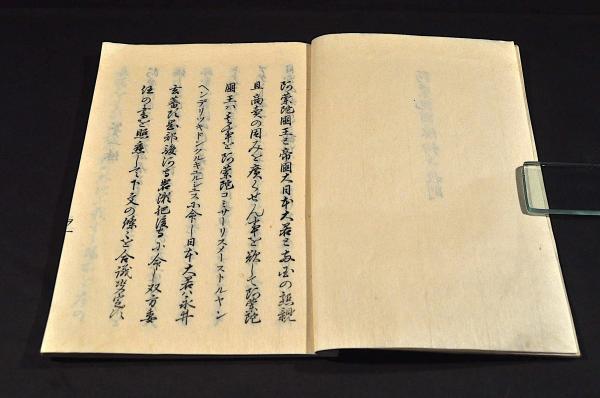 阿蘭陀國王と帝國大日本大君と両国の懇親
且商売の因みを廣くせん事を欲して阿蘭陀
國王ハ其事を阿蘭陀コミサーリスメーストルヤン
ヘンデリッキドンクルキュルシュス小命し日本大君ハ永井
玄蕃頭岡部駿河守岩瀬肥後守小命し双方委
任の書を照應して下文の條々を合議决定す